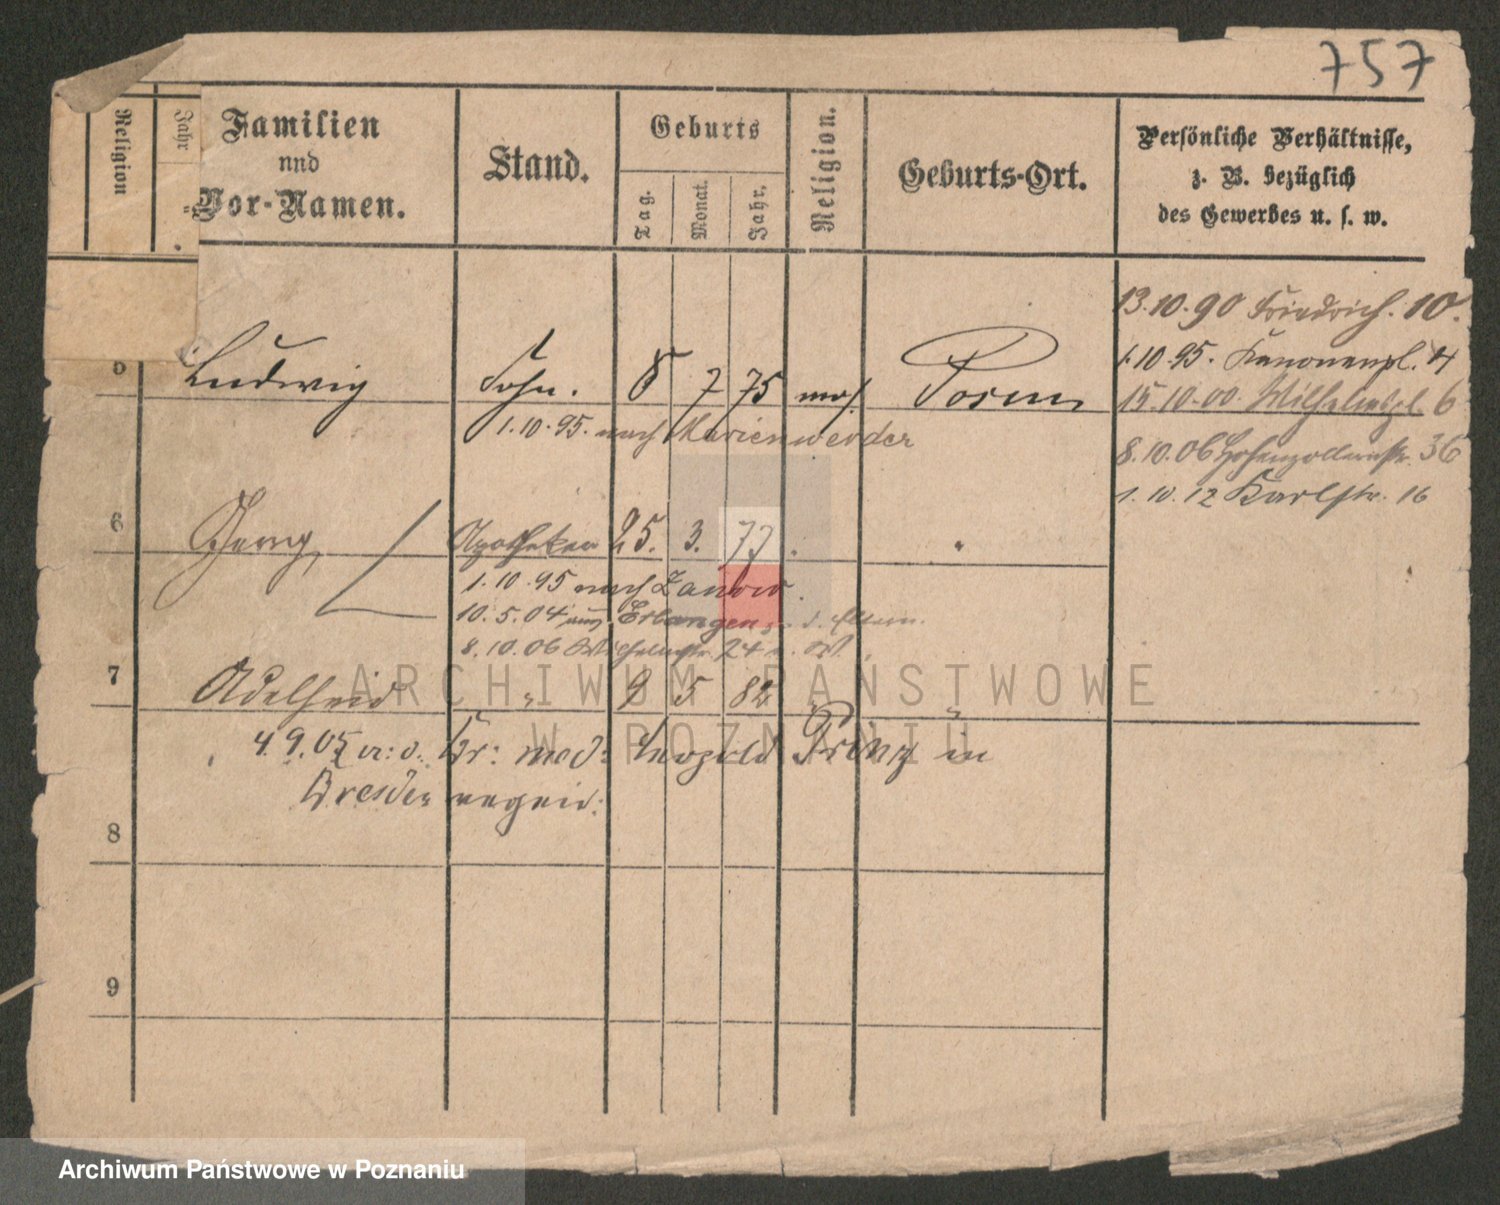 757
Religion
Jahr
Familien
und
Vor-Namen.
Stand.
Geburts
Tag.
Monat.
Jahr.
Religion.
Geburts-Ort.
Persönliche Verhältnisse,
z. B. bezüglich
des Gewerbes u. s. w.
13.10.90 Friedrich. 10.
1.10.95. Kanonenpl. 4
15.10.00. Wilhelmspl. 6
8.10.06 Hohenzollernstr. 36
1.10.12 Karlstr. 16
5 Ludwig Sohn. 8 7 75 mos. Posen
1.10.95. nach Marienwerder
6 Georg Apotheker 25. 3. 77 . "
1.10.95 nach Zanow.
10.5.04 aus Erlangen z. d. Eltern.
8.10.06 Wilhelmstr. 24 b. W.
7 Adelheid " 9 5 82 "
4.9.05 m. d. Dr. med. Leopold Prinz in
Dresden
8
9
ARCHIWUM PAŃSTWOWE
W POZNANIU
Archiwum Państwowe w Poznaniu